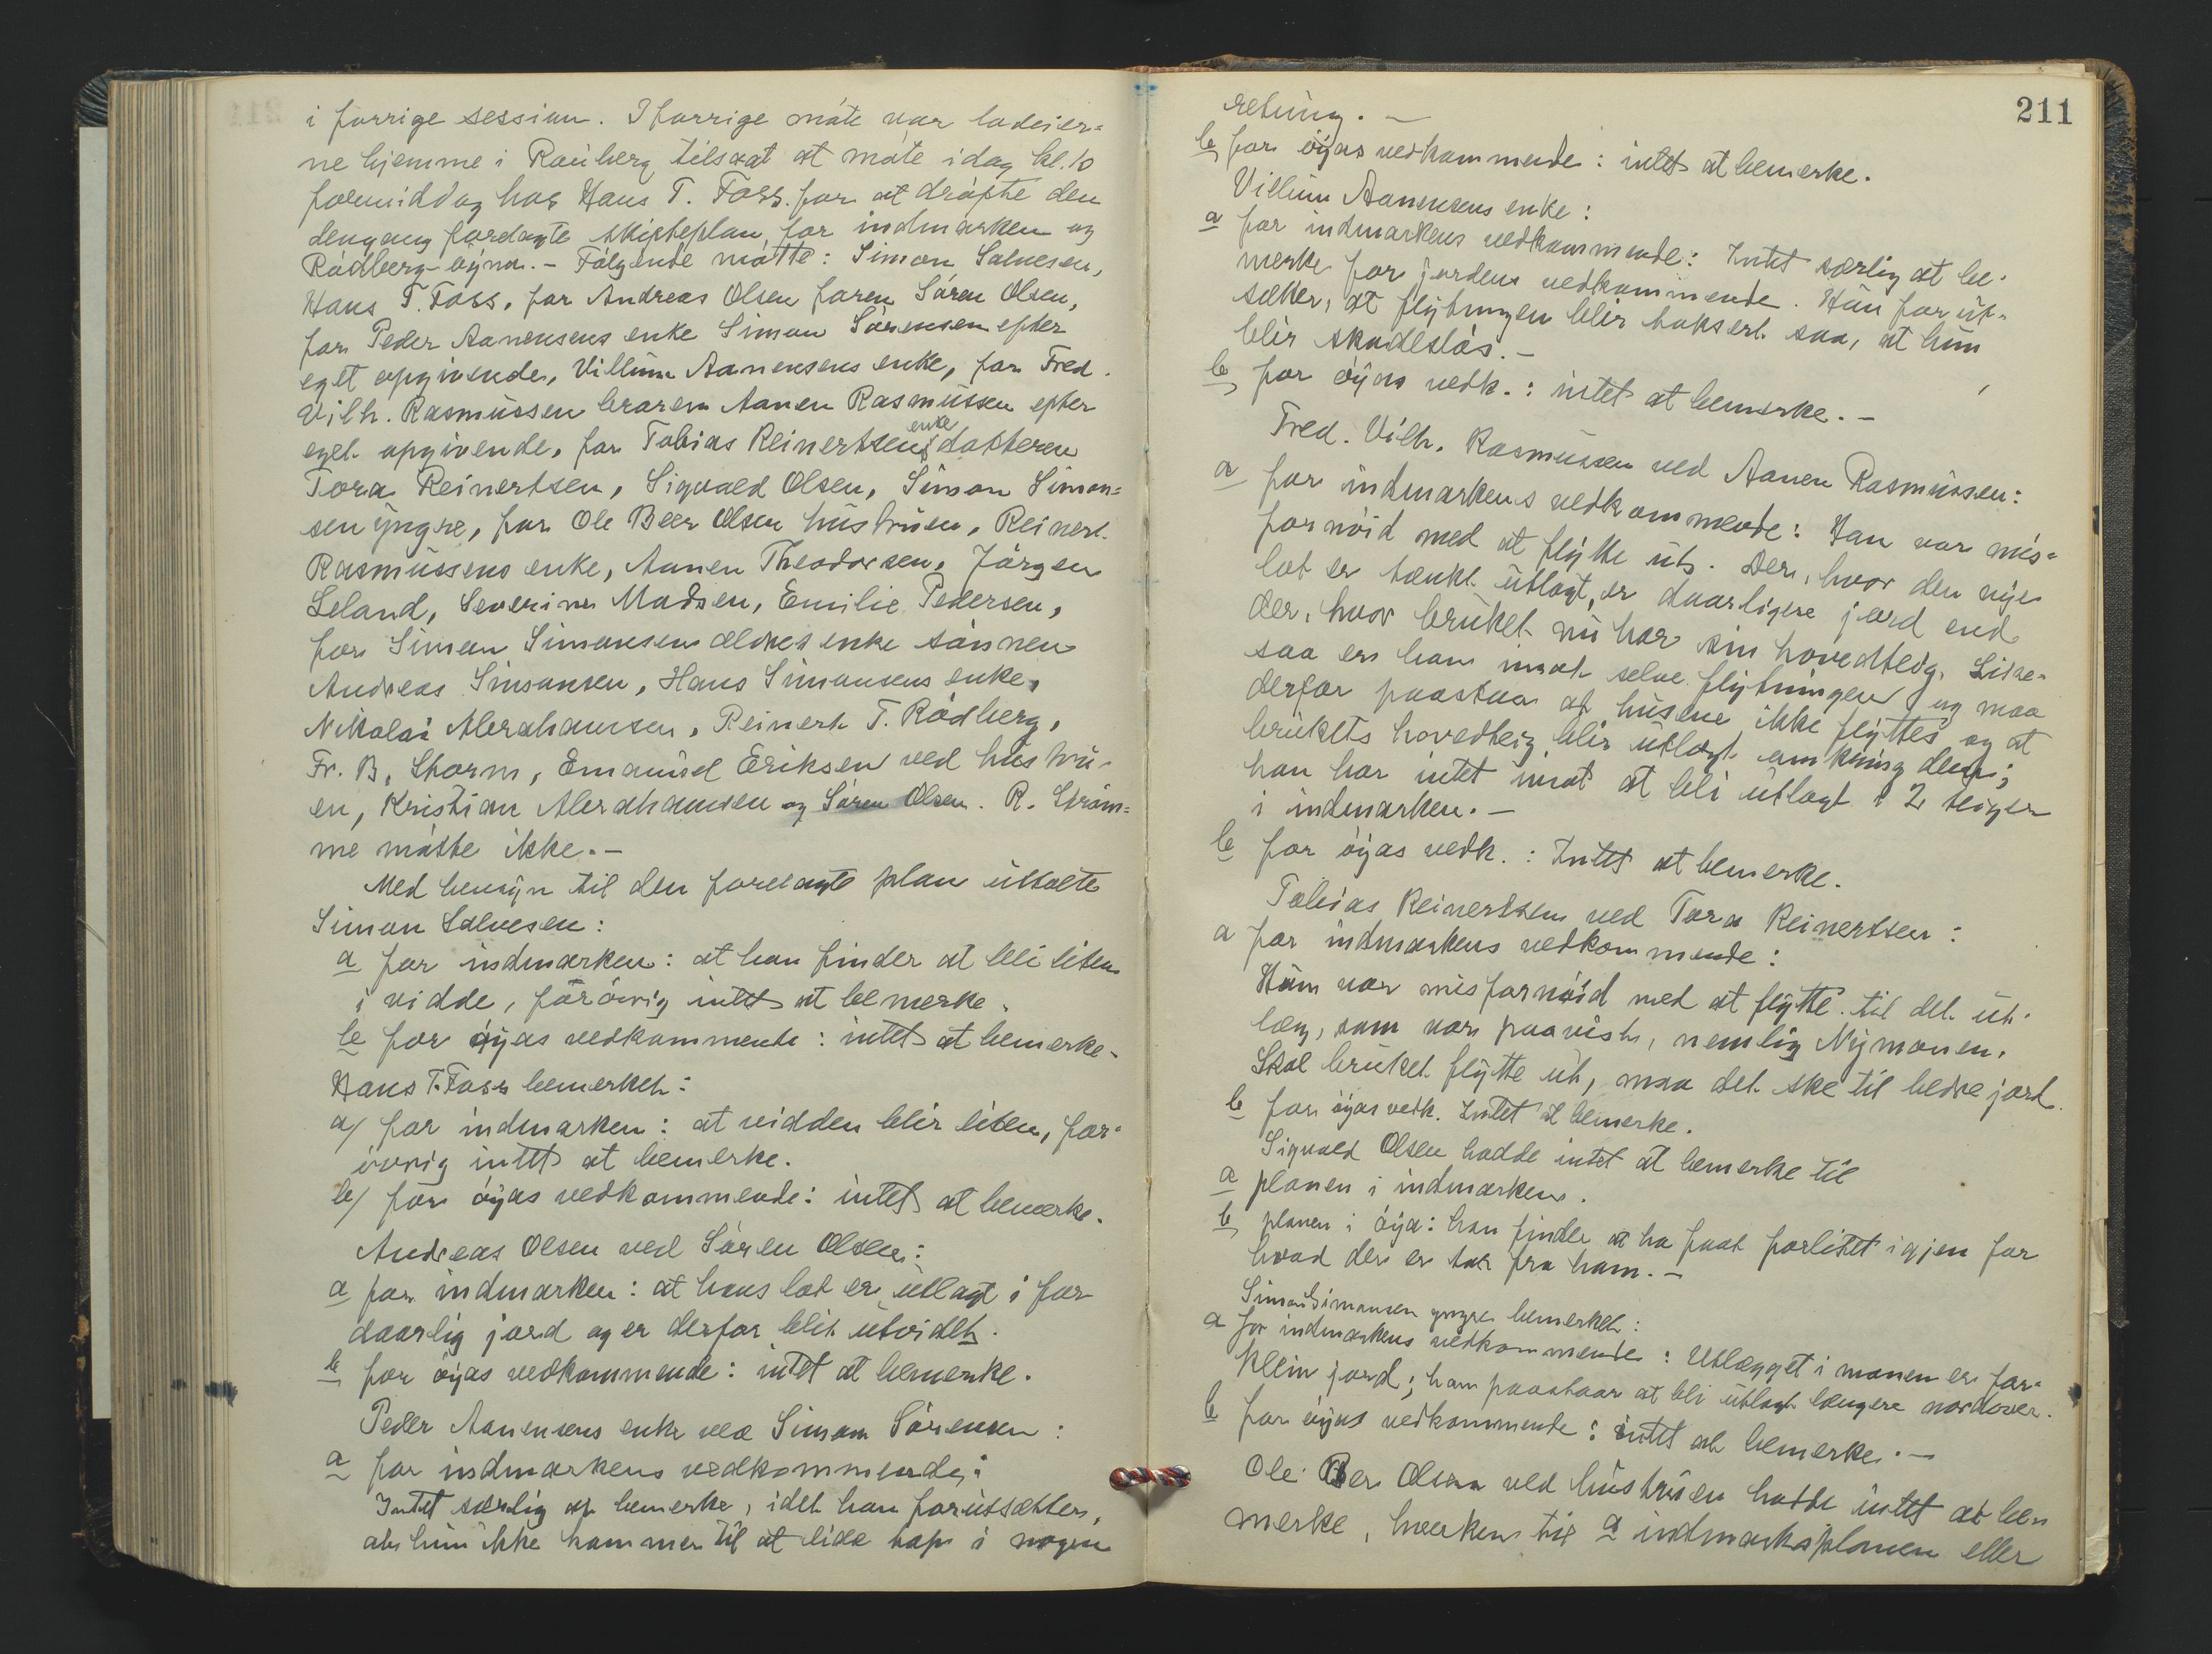 i forrige session. I forrige möte var lodeier-
ne hjemme i Rauberg tilsaat at möte idag kl. 10
formiddag hos Hans T. Foss. for at dröfte den
dengang fordagte skifteplan for indmarken og
Rödberg-öyna. - Fölgende mötte: Simon Salvesen,
Hans T. Foss, for Andreas Olsen faren Sören Olsen,
for Peder Aanensens enke Simon Sörensen efter
eget opgivende, Villum Aanensens enke, for Fred.
Vilh. Rasmussen broren Aanen Rasmussen efter
eget opgivende, for Tobias Reinertsens enke datteren
Tora Reinertsen, Sigvald Olsen, Simon Simon-
sen yngre, for Ole Beer Olsen hustruen, Reinert
Rasmussens enke, Aanen Theodorsen, Jörgen
Leland, Severine Madsen, Emilie Pedersen,
for Simon Simonsen ældres enke sönnen
Andreas Simonsen, Hans Simonsens enke,
Nikolai Abrahamsen, Reinert T. Rödberg,
Fr. B. Storm, Emanuel Eriksen ved hustru-
en, Kristian Abrahamsen og Sören Olsen. R. Ström-
me mötte ikke. -
Med hensyn til den forelagte plan uttalte
Simon Salvesen:
a for indmarken: at han finder at bli liten
i vidde, forövrig intet at bemerke.
b for öyas vedkommende: intet at bemerke.
Hans T. Foss bemerket:
a/ for indmarken: at vidden blir liten, for-
övrig intet at bemerke.
b/ for öyas vedkommende: intet at bemerke.
Andreas Olsen ved Sören Olsen:
a for indmarken: at hans lot er utlagt i for
daarlig jord og er derfor blit utvidet.
b for öyas vedkommende: intet at bemerke.
Peder Aanensens enke ved Simon Sörensen:
a for indmarkens vedkommende:
Intet særlig at bemerke, idet han forutsætter,
at hun ikke kommer til at lide tap i nogen
211
retning. -
b for öyas vedkommende: intet at bemerke.
Villum Aanensens enke:
a for indmarkens vedkommende: Intet særlig at be-
merke for jordens vedkommende. Hun forut-
sætter, at flytningen blir taksert saa, at hun
blir skadeslös. -
b for öyas vedk.: intet at bemerke. -
Fred. Vilh. Rasmussen ved Aanen Rasmussen:
a for indmarkens vedkommende: Han var mis-
fornöid med at flytte ut. Der, hvor den nye
lot er tænkt utlagt, er daarligere jord end
der, hvor bruket nu har sin hovedteig. Like-
saa er han imot selve flytningen og maa
derfor paastaa at husene ikke flyttes og at
brukets hovedteig blir utlagt omkring dem;
han har intet imot at bli utlagt i 2 teiger
i indmarken. -
b for öyas vedk.: Intet at bemerke.
Tobias Reinertsen ved Tora Reinertsen:
a for indmarkens vedkommende:
Hun var misfornöid med at flytte til det ut-
læg, som var paavist, nemlig Nymonen.
Skal bruket flytte ut, maa det ske til bedre jord.
b for öyas vedk. Intet at bemerke.
Sigvald Olsen hadde intet at bemerke til
a planen i indmarken.
b planen i öya: han finder at ha faat forlitet igjen for
hvad der er tat fra ham. -
Simon Simonsen yngre bemerket:
a for indmarkens vedkommende: Utlægget i monen er for-
klein jord; han paastaar at bli utlagt længere nordover.
b for öyas vedkommende: intet at bemerke. -
Ole Beer Olsen ved hustruen hadde intet at be-
merke, hverken til a indmarksplanen eller